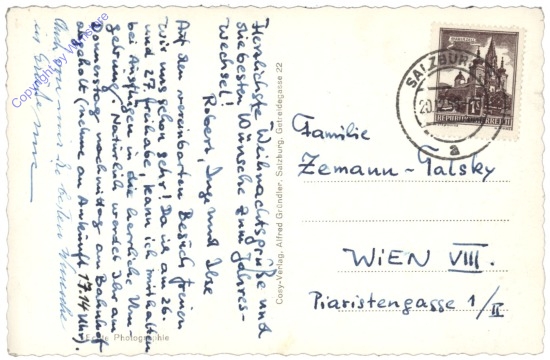 Herzlichste Weihnachtsgrüße und
die besten Wünsche zum Jahres-
Wechsel!
Robert, Inge und Ilse
Auf den vereinbarten Besuch freuen
wir uns schon sehr! Da ich am 26.
und 27. frei habe, kann ich mithalten
bei Ausflügen in die herrliche Um-
gebung. Natürlich werdet Ihr am
Donnerstag nachmittag am Bahnhof
abgeholt (nehme an Ankunft 17.14 Uhr).
Auch von mir die besten Wünsche
Cosy-Verlag, Alfred Gründler, Salzburg, Getreidegasse 22
Echte Photographie
SALZBURG
a
MARIAZELL
REPUBLIK ÖSTERREICH
Familie
Zemann-Galsky
WIEN VIII.
Piaristengasse 1/II
Copyright by